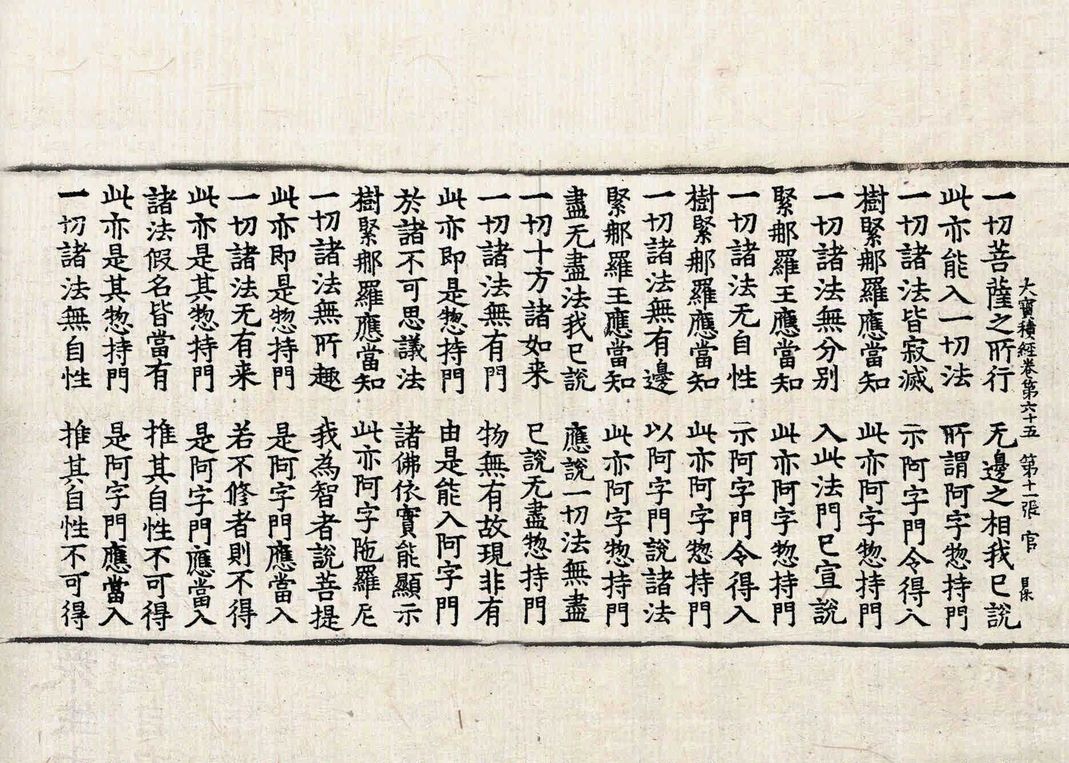 大寶積經卷第六十五 第十一張 官 杲
一切菩薩之所行 无邊之相我已說
此亦能入一切法 所謂阿字惣持門
一切諸法皆寂滅 示阿字門令得入
樹緊那羅應當知 此亦阿字惣持門
一切諸法無分別 入此法門已宣說
緊那羅王應當知 此亦阿字惣持門
一切諸法无自性 示阿字門令得入
樹緊那羅應當知 此亦阿字惣持門
一切諸法無有邊 以阿字門說諸法
緊那羅王應當知 此亦阿字惣持門
盡无盡法我已說 應說一切法無盡
一切十方諸如来 已說无盡惣持門
一切諸法無有門 物無有故現非有
此亦即是惣持門 由是能入阿字門
於諸不可思議法 諸佛依實能顯示
樹緊那羅應當知 此亦阿字陁羅尼
一切諸法無所趣 我為智者說菩提
此亦即是惣持門 是阿字門應當入
一切諸法无有来 若不修者則不得
此亦是其惣持門 是阿字門應當入
諸法假名皆當有 推其自性不可得
此亦是其惣持門 是阿字門應當入
一切諸法無自性 推其自性不可得